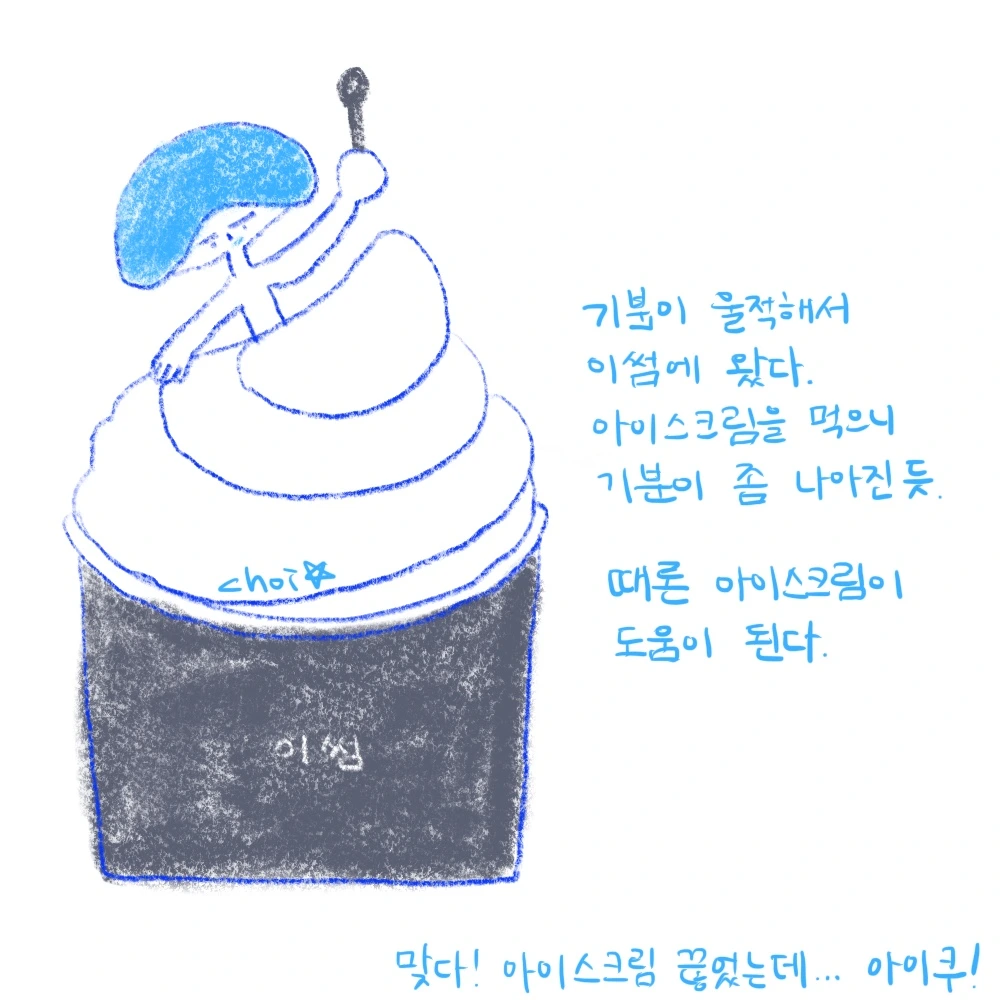 기분이 울적해서
이썸에 왔다.
아이스크림을 먹으니
기분이 좀 나아진 듯.
때론 아이스크림이
도움이 된다.
choi☆
이썸
맞다! 아이스크림 끊었는데... 아이쿠!